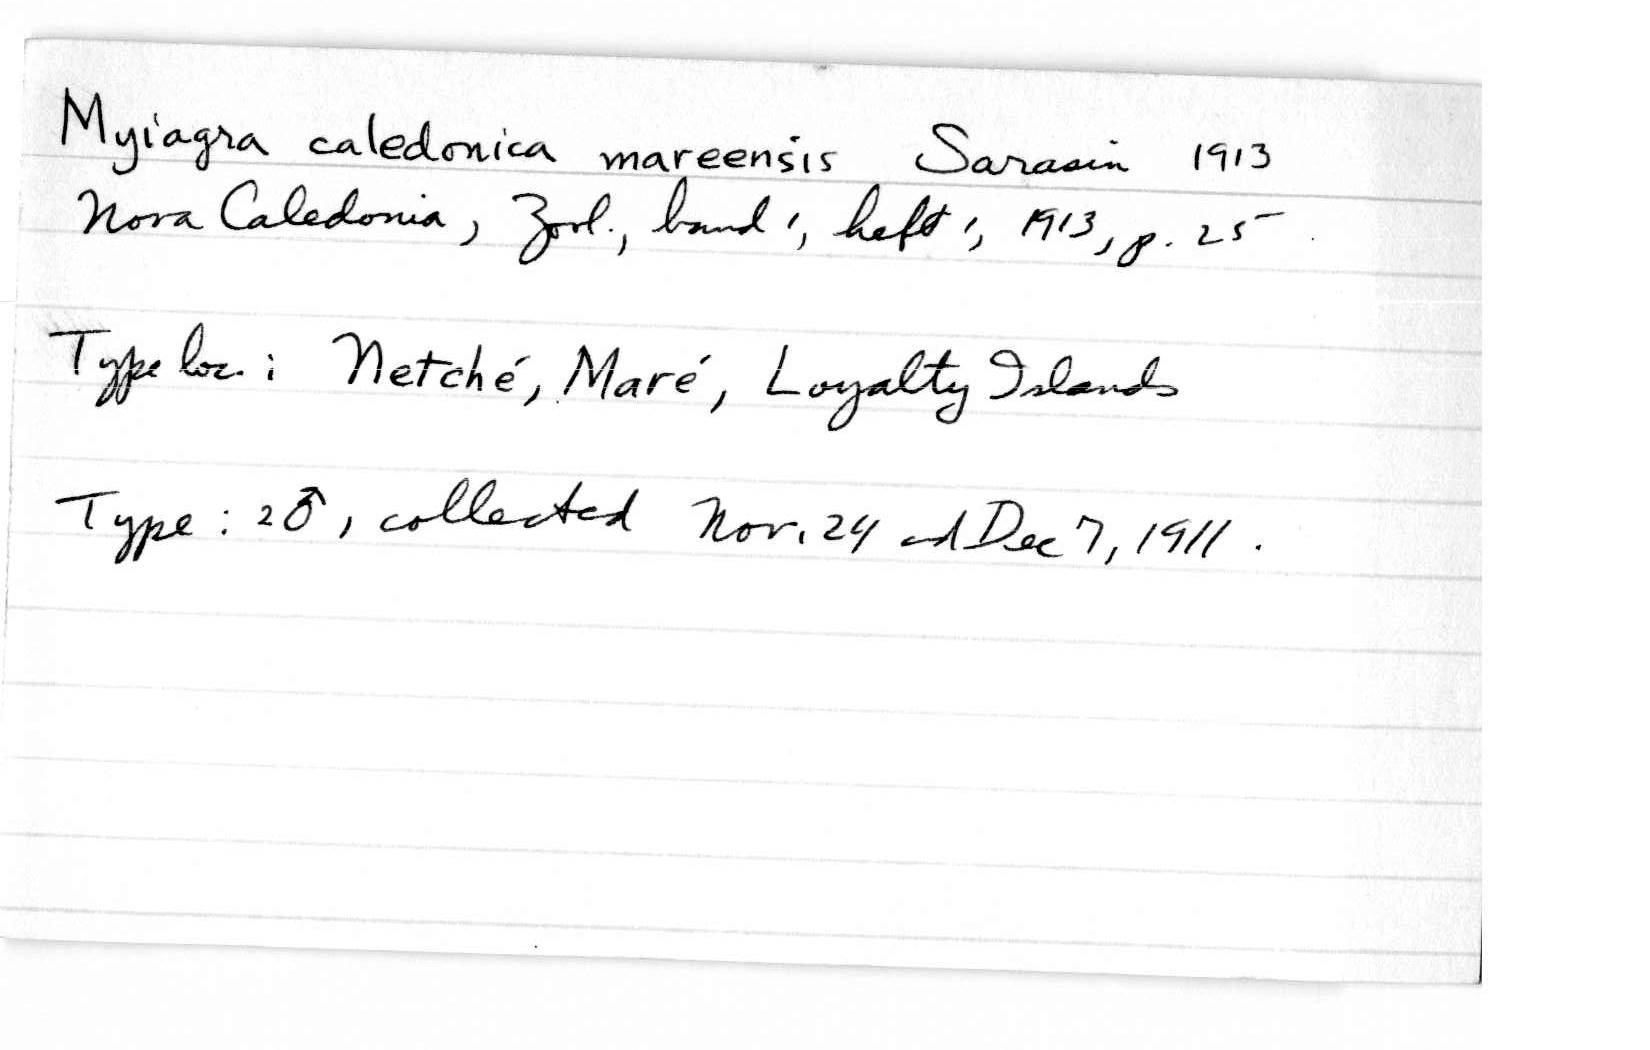 Myiagra caledonica mareensis Sarasin 1913
Nova Caledonia, Zool., band 1, heft 1, 1913, p. 25
Type loc.: Netché, Maré, Loyalty Islands
Type: 2♂, collected Nov. 24 and Dec 7, 1911.